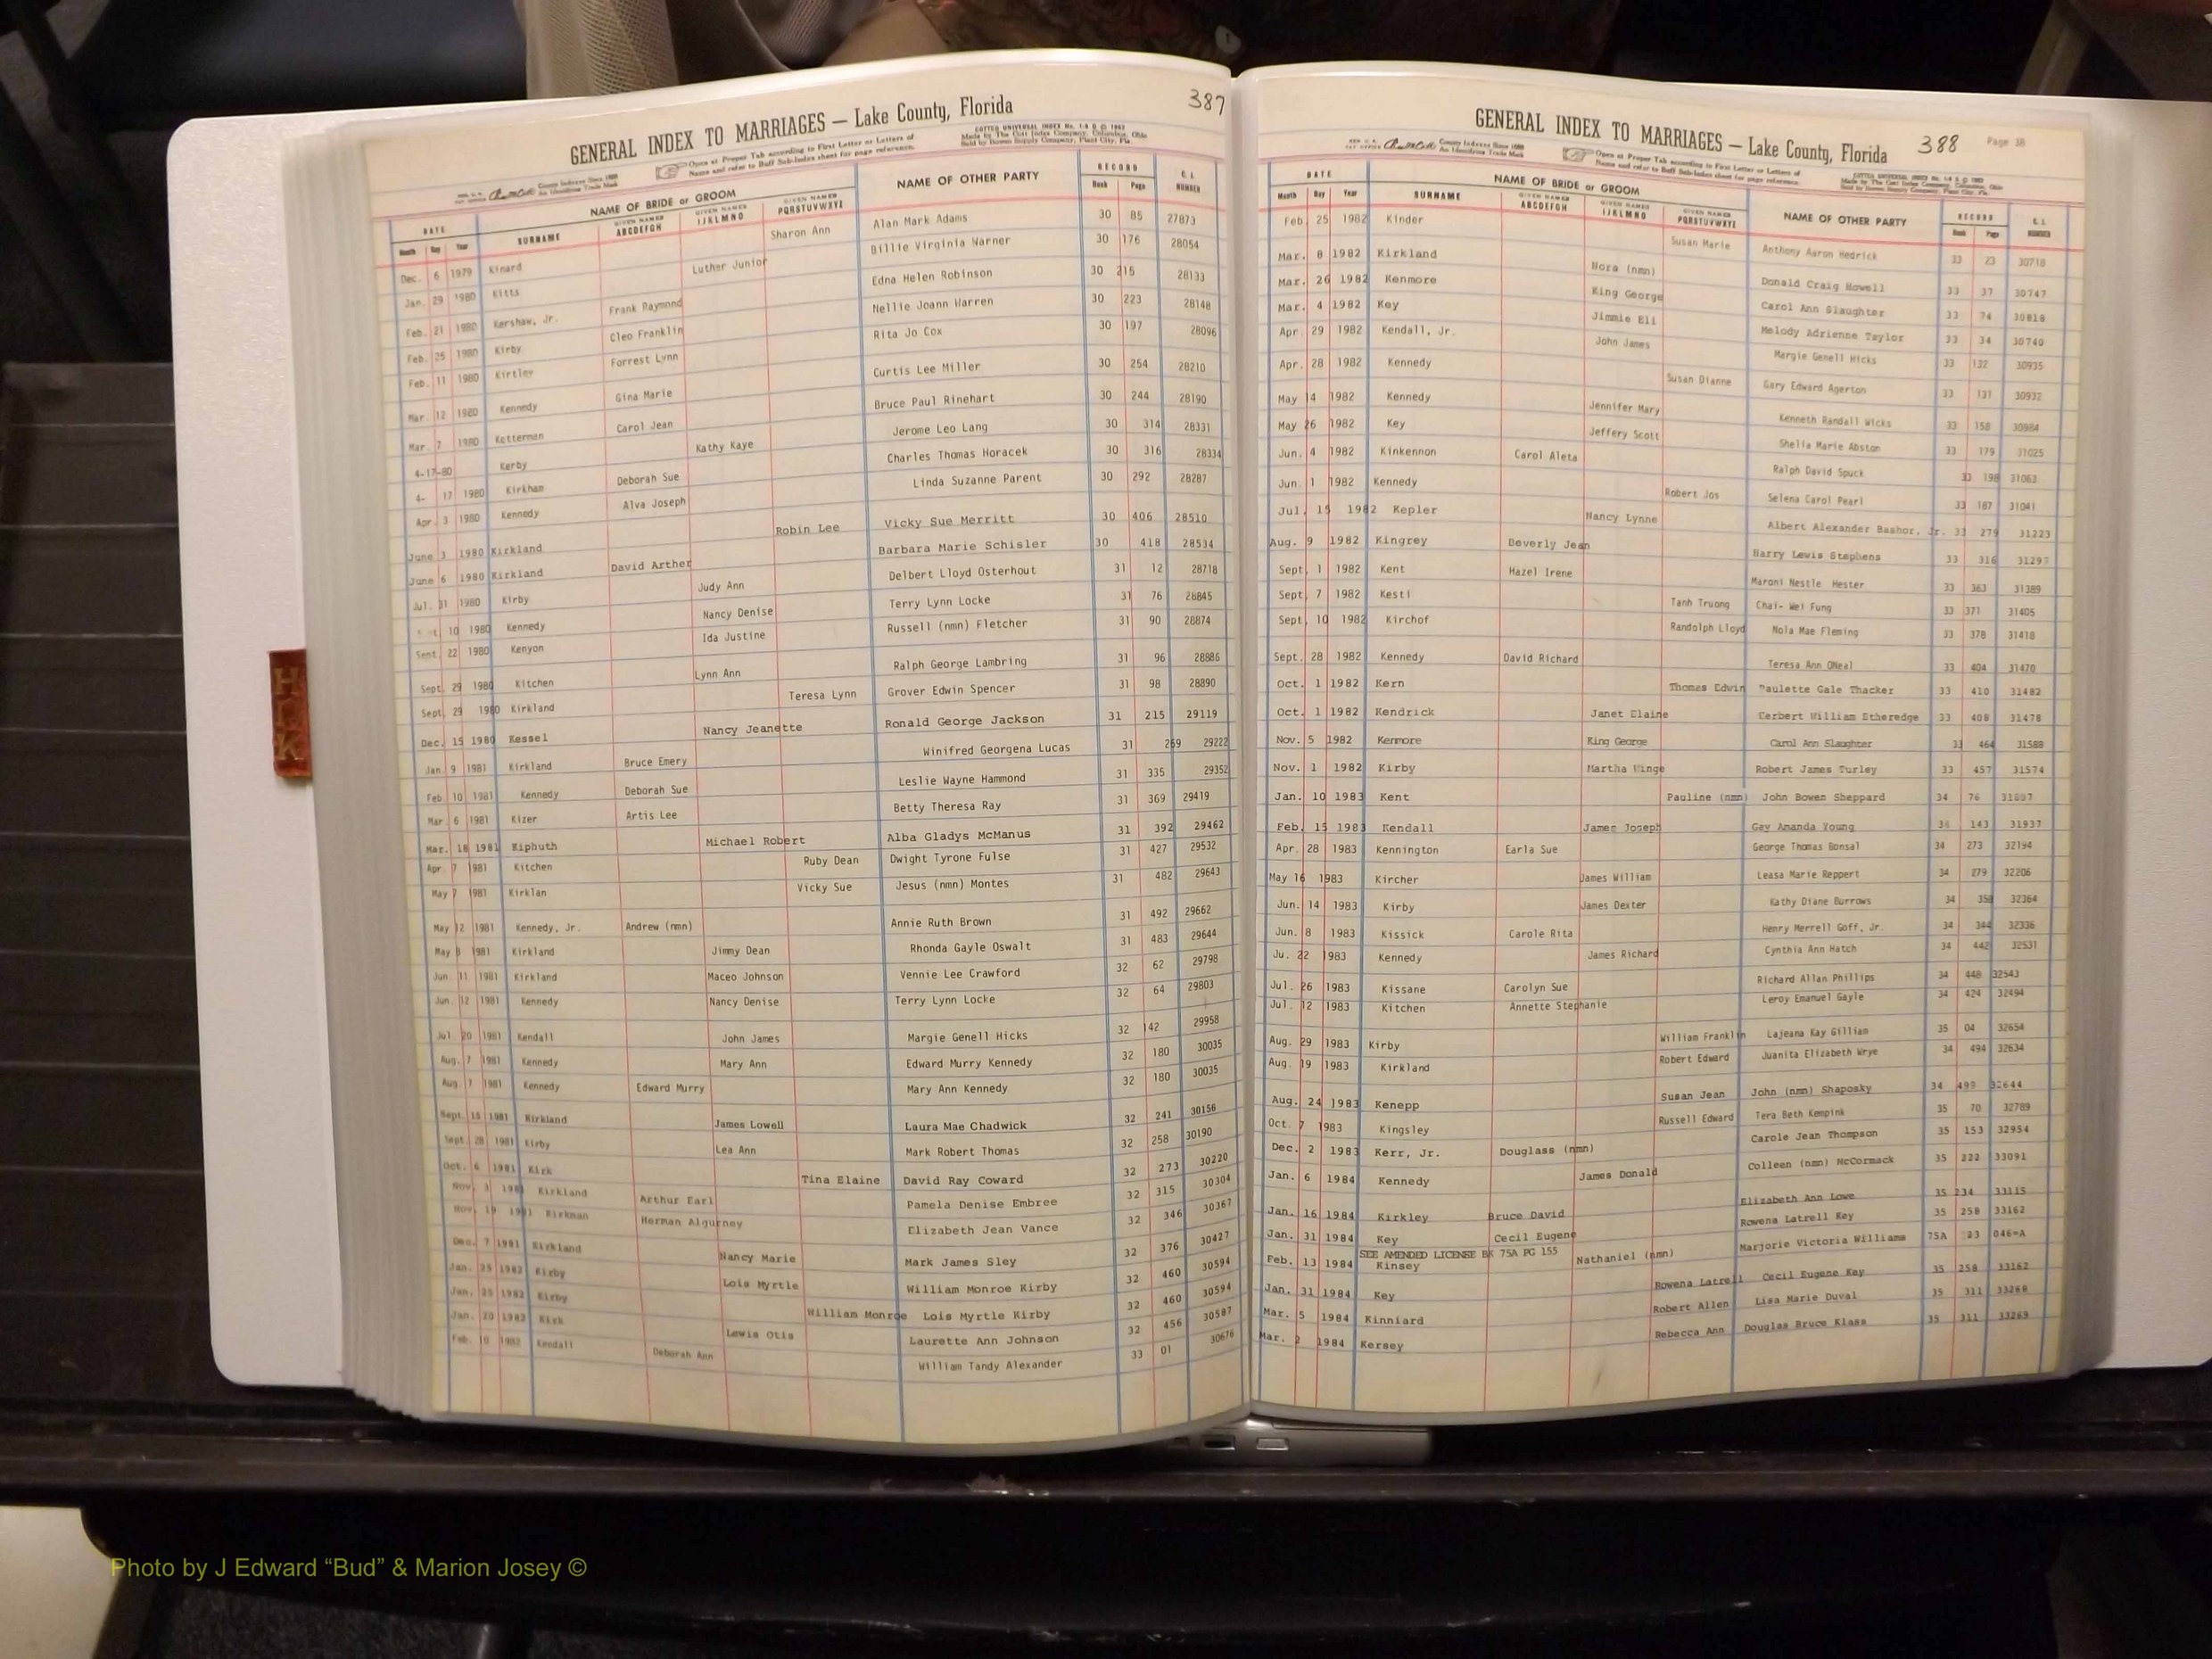 387
GENERAL INDEX TO MARRIAGES — Lake County, Florida
Open at Proper Tab according to First Letter or Letters of
Name and refer to Buff Sub-Index sheet for page reference.
COTTCO UNIVERSAL INDEX
Made by The Cott Index Company, Columbus, Ohio
DATE NAME OF BRIDE or GROOM NAME OF OTHER PARTY RECORD
Month Day Year SURNAME GIVEN NAMES ABCDEFGH GIVEN NAMES IJKLMNO GIVEN NAMES PQRSTUVWXYZ Book Page NUMBER
Dec. 6 1979 Kinard Sharon Ann Alan Mark Adams 30 85 27873
Jan. 29 1980 Kitts Luther Junior Billie Virginia Warner 30 176 28054
Feb. 21 1980 Kershaw, Jr. Frank Raymond Edna Helen Robinson 30 215 28133
Feb. 25 1980 Kirby Cleo Franklin Nellie Joann Warren 30 223 28148
Feb. 11 1980 Kirtley Forrest Lynn Rita Jo Cox 30 197 28096
Mar. 12 1980 Kennedy Gina Marie Curtis Lee Miller 30 254 28210
Mar. 7 1980 Ketterman Carol Jean Bruce Paul Rinehart 30 244 28190
4-17-80 Kerby Kathy Kaye Jerome Leo Lang 30 314 28331
4- 17 1980 Kirkham Deborah Sue Charles Thomas Horacek 30 316 28334
Apr. 3 1980 Kennedy Alva Joseph Linda Suzanne Parent 30 292 28287
June 3 1980 Kirkland Robin Lee Vicky Sue Merritt 30 406 28510
June 6 1980 Kirkland David Arther Barbara Marie Schisler 30 418 28534
Jul. 31 1980 Kirby Judy Ann Delbert Lloyd Osterhout 31 12 28718
10 1980 Kennedy Nancy Denise Terry Lynn Locke 31 76 28845
Sept. 22 1980 Kenyon Ida Justine Russell (nmn) Fletcher 31 90 28874
Sept. 29 1980 Kitchen Lynn Ann Ralph George Lambring 31 96 28886
Sept. 29 1980 Kirkland Teresa Lynn Grover Edwin Spencer 31 98 28890
Dec. 15 1980 Kessel Nancy Jeanette Ronald George Jackson 31 215 29119
Jan. 9 1981 Kirkland Bruce Emery Winifred Georgena Lucas 31 269 29222
Feb. 10 1981 Kennedy Deborah Sue Leslie Wayne Hammond 31 335 29352
Mar. 6 1981 Kizer Artis Lee Betty Theresa Ray 31 369 29419
Mar. 18 1981 Kiphuth Michael Robert Alba Gladys McManus 31 392 29462
Apr. 7 1981 Kitchen Ruby Dean Dwight Tyrone Fulse 31 427 29532
May 7 1981 Kirklan Vicky Sue Jesus (nmn) Montes 31 482 29643
May 12 1981 Kennedy, Jr. Andrew (nmn) Annie Ruth Brown 31 492 29662
May 8 1981 Kirkland Jimmy Dean Rhonda Gayle Oswalt 31 483 29644
Jun. 11 1981 Kirkland Maceo Johnson Vennie Lee Crawford 32 62 29798
Jun. 12 1981 Kennedy Nancy Denise Terry Lynn Locke 32 64 29803
Jul. 20 1981 Kendall John James Margie Genell Hicks 32 142 29958
Aug. 7 1981 Kennedy Mary Ann Edward Murry Kennedy 32 180 30035
Aug. 7 1981 Kennedy Edward Murry Mary Ann Kennedy 32 180 30035
Sept. 15 1981 Kirkland James Lowell Laura Mae Chadwick 32 241 30156
Sept. 28 1981 Kirby Lea Ann Mark Robert Thomas 32 258 30190
Oct. 6 1981 Kirk Tina Elaine David Ray Coward 32 273 30220
Nov. 3 1981 Kirkland Arthur Earl Pamela Denise Embree 32 315 30304
Nov. 19 1981 Kirkman Herman Algurney Elizabeth Jean Vance 32 346 30367
Dec. 7 1981 Kirkland Nancy Marie Mark James Sley 32 376 30427
Jan. 25 1982 Kirby Lois Myrtle William Monroe Kirby 32 460 30594
Jan. 25 1982 Kirby William Monroe Lois Myrtle Kirby 32 460 30594
Jan. 20 1982 Kirk Lewis Otis Laurette Ann Johnson 32 456 30587
Feb. 10 1982 Kendall Deborah Ann William Tandy Alexander 33 01 30676
388
GENERAL INDEX TO MARRIAGES — Lake County, Florida
Open at Proper Tab according to First Letter or Letters of
Name and refer to Buff Sub-Index sheet for page reference.
DATE NAME OF BRIDE or GROOM NAME OF OTHER PARTY RECORD
Month Day Year SURNAME GIVEN NAMES ABCDEFGH GIVEN NAMES IJKLMNO GIVEN NAMES PQRSTUVWXYZ Book Page NUMBER
Feb. 25 1982 Kinder Susan Marie Anthony Aaron Hedrick 33 23 30718
Mar. 8 1982 Kirkland Nora (nmn) Donald Craig Howell 33 37 30747
Mar. 26 1982 Kenmore King George Carol Ann Slaughter 33 74 30818
Mar. 4 1982 Key Jimmie Eli Melody Adrienne Taylor 33 34 30740
Apr. 29 1982 Kendall, Jr. John James Margie Genell Hicks 33 132 30935
Apr. 28 1982 Kennedy Susan Dianne Gary Edward Agerton 33 131 30932
May 14 1982 Kennedy Jennifer Mary Kenneth Randall Wicks 33 158 30984
May 26 1982 Key Jeffery Scott Shelia Marie Abston 33 179 31025
Jun. 4 1982 Kinkennon Carol Aleta Ralph David Spuck 33 198 31063
Jun. 1 1982 Kennedy Robert Jos Selena Carol Pearl 33 187 31041
Jul. 15 1982 Kepler Nancy Lynne Albert Alexander Bashor, Jr. 33 279 31223
Aug. 9 1982 Kingrey Beverly Jean Harry Lewis Stephens 33 316 31297
Sept. 1 1982 Kent Hazel Irene Maroni Nestle Hester 33 363 31389
Sept. 7 1982 Kesti Tanh Truong Chai- Wei Fung 33 371 31405
Sept. 10 1982 Kirchof Randolph Lloyd Nola Mae Fleming 33 378 31418
Sept. 28 1982 Kennedy David Richard Teresa Ann ONeal 33 404 31470
Oct. 1 1982 Kern Thomas Edwin Paulette Gale Thacker 33 410 31482
Oct. 1 1982 Kendrick Janet Elaine Herbert William Etheredge 33 408 31478
Nov. 5 1982 Kenmore King George Carol Ann Slaughter 33 464 31588
Nov. 1 1982 Kirby Martha Winge Robert James Turley 33 457 31574
Jan. 10 1983 Kent Pauline (nmn) John Bowen Sheppard 34 76
Feb. 15 1983 Kendall James Joseph Gay Amanda Young 34 143 31937
Apr. 28 1983 Kennington Earla Sue George Thomas Bonsal 34 273 32194
May 16 1983 Kircher James William Leasa Marie Reppert 34 279 32206
Jun. 14 1983 Kirby James Dexter Kathy Diane Burrows 34 358 32364
Jun. 8 1983 Kissick Carole Rita Henry Merrell Goff, Jr. 34 344 32336
Ju. 22 1983 Kennedy James Richard Cynthia Ann Hatch 34 442 32531
Jul. 26 1983 Kissane Carolyn Sue Richard Allan Phillips 34 448 32543
Jul. 12 1983 Kitchen Annette Stephanie Leroy Emanuel Gayle 34 424 32494
Aug. 29 1983 Kirby William Franklin Lajeana Kay Gilliam 35 04 32654
Aug. 19 1983 Kirkland Robert Edward Juanita Elizabeth Wrye 34 494 32634
Aug. 24 1983 Kenepp Susan Jean John (nmn) Shaposky 34 499 32644
Oct. 7 1983 Kingsley Russell Edward Tera Beth Kempink 35 70 32789
Dec. 2 1983 Kerr, Jr. Douglass (nmn) Carole Jean Thompson 35 153 32954
Jan. 6 1984 Kennedy James Donald Colleen (nmn) McCormack 35 222 33091
Jan. 16 1984 Kirkley Bruce David Elizabeth Ann Lowe 35 234 33115
Jan. 31 1984 Key Cecil Eugene Rowena Latrell Key 35 258 33162
SEE AMENDED LICENSE BK 75A PG 155
Feb. 13 1984 Kinsey Nathaniel (nmn) Marjorie Victoria Williams 75A 23 046=A
Jan. 31 1984 Key Rowena Latrell Cecil Eugene Key 35 258 33162
Mar. 5 1984 Kinniard Robert Allen Lisa Marie Duval 35 311 33268
Mar. 2 1984 Kersey Rebecca Ann Douglas Bruce Klass 35 311 33269
HIJK
Photo by J Edward “Bud” & Marion Josey ©